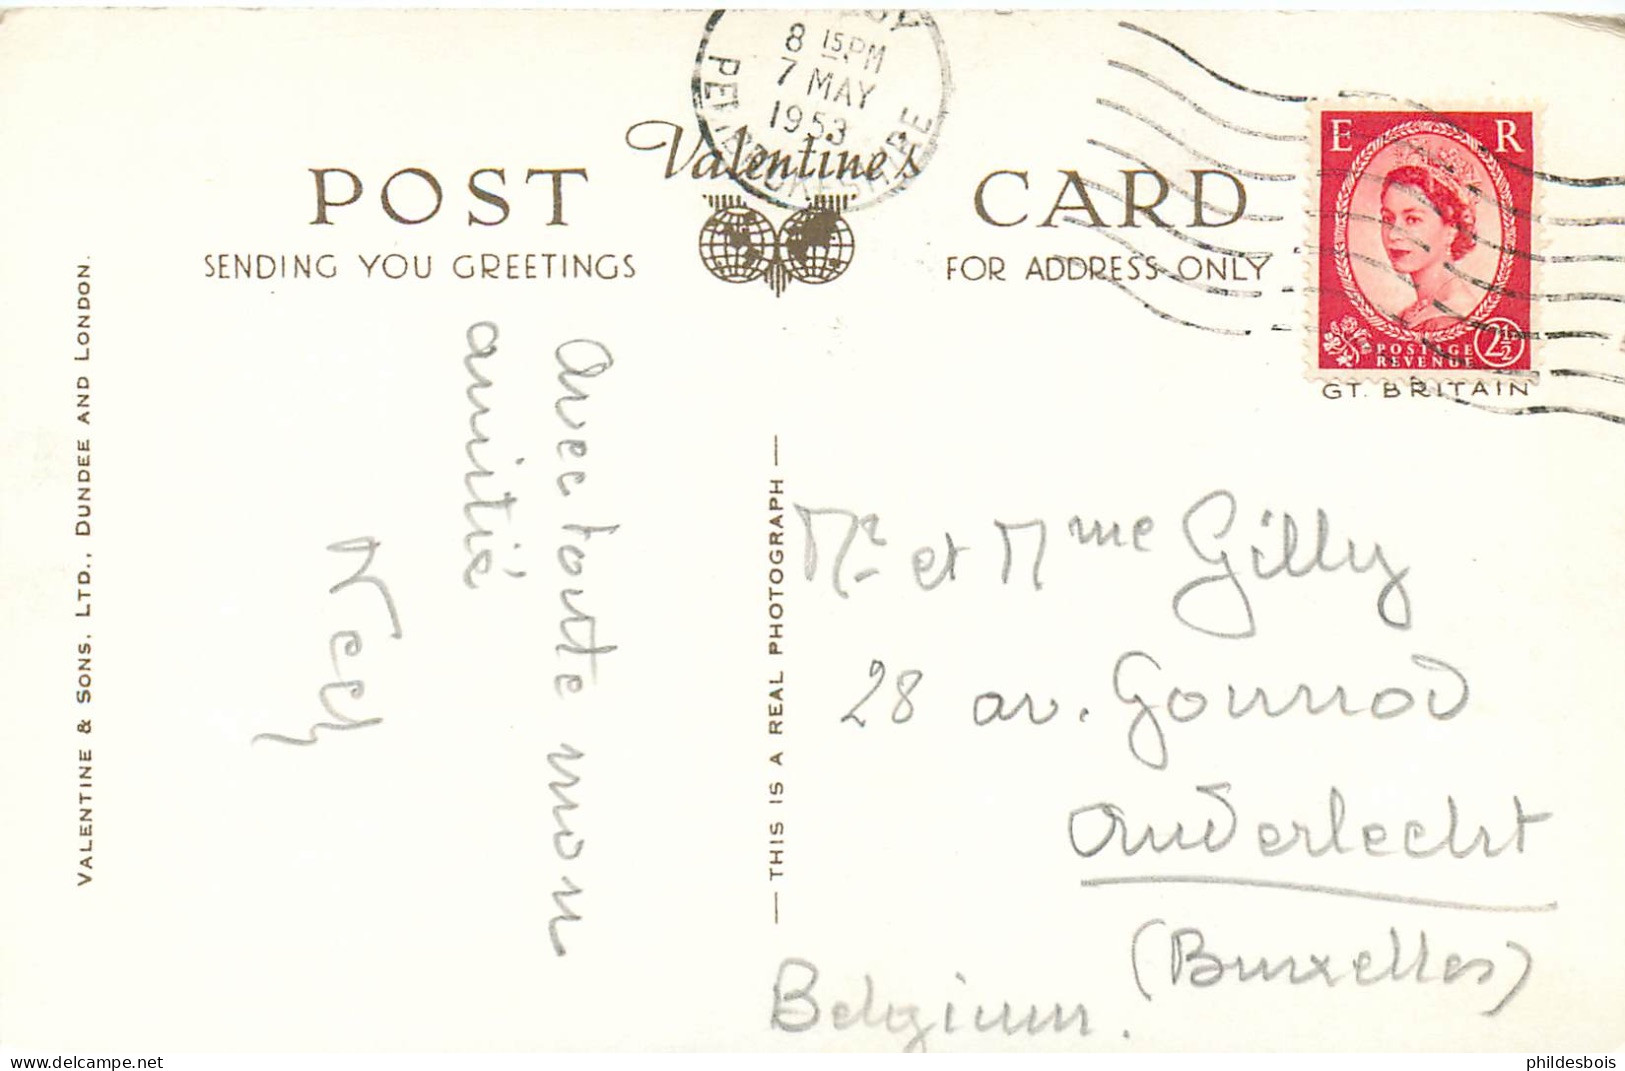 8 15 PM
7 MAY
1953
PEMBROKESHIRE
Valentine's
POST CARD
SENDING YOU GREETINGS
FOR ADDRESS ONLY
E R
POSTAGE
REVENUE
2½
GT. BRITAIN
VALENTINE & SONS, LTD., DUNDEE AND LONDON.
— THIS IS A REAL PHOTOGRAPH —
Avec toute mon
amitié
Mr et Mme Gilly
28 av. Gounod
Anderlecht
(Bruxelles)
Belgium.
delcampe.net
phildesbois